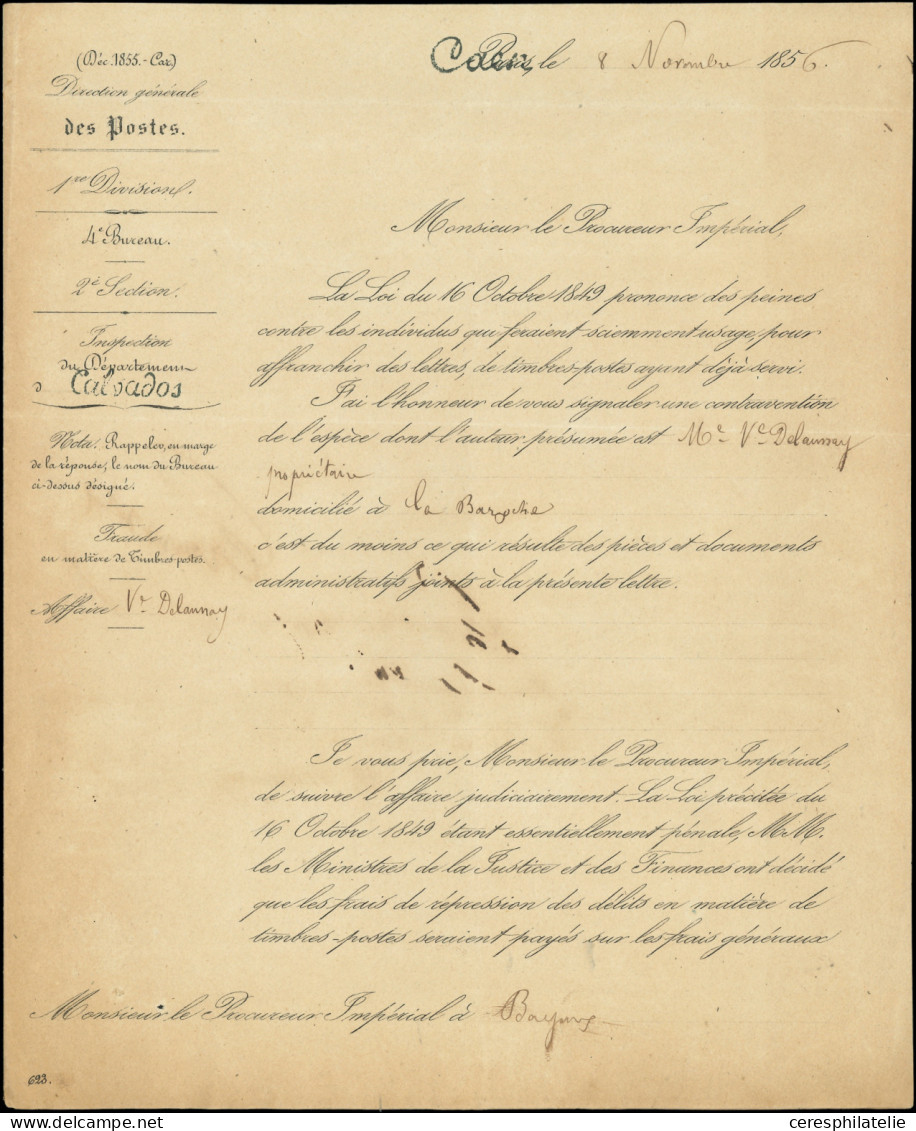 (Déc. 1855.-Car)
Direction générale
des Postes.
1re Division.
4e Bureau.
2e Section.
Inspection
du Département
d Calvados
Nota. Rappeler, en marge
de la réponse, le nom du Bureau
ci-dessus désigné.
Fraude
en matière de Timbres-postes.
Affaire Ve Delaunay
Caen, le 8 Novembre 1856.
Monsieur le Procureur Impérial,
La Loi du 16 Octobre 1849 prononce des peines
contre les individus qui feraient sciemment usage, pour
affranchir des lettres, de timbres-postes ayant déjà servi.
J'ai l'honneur de vous signaler une contravention
de l'espèce dont l'auteur présumée est Me Ve Delaunay
propriétaire
domicilié à la Bazoche
c'est du moins ce qui résulte des pièces et documents
administratifs joints à la présente lettre.
Je vous prie, Monsieur le Procureur Impérial,
de suivre l'affaire judiciairement. La Loi précitée du
16 Octobre 1849 étant essentiellement pénale, M.M.
les Ministres de la Justice et des Finances ont décidé
que les frais de répression des délits en matière de
timbres-postes seraient payés sur les frais généraux
Monsieur le Procureur Impérial à Bayeux
623.
ceresphilatelie.com